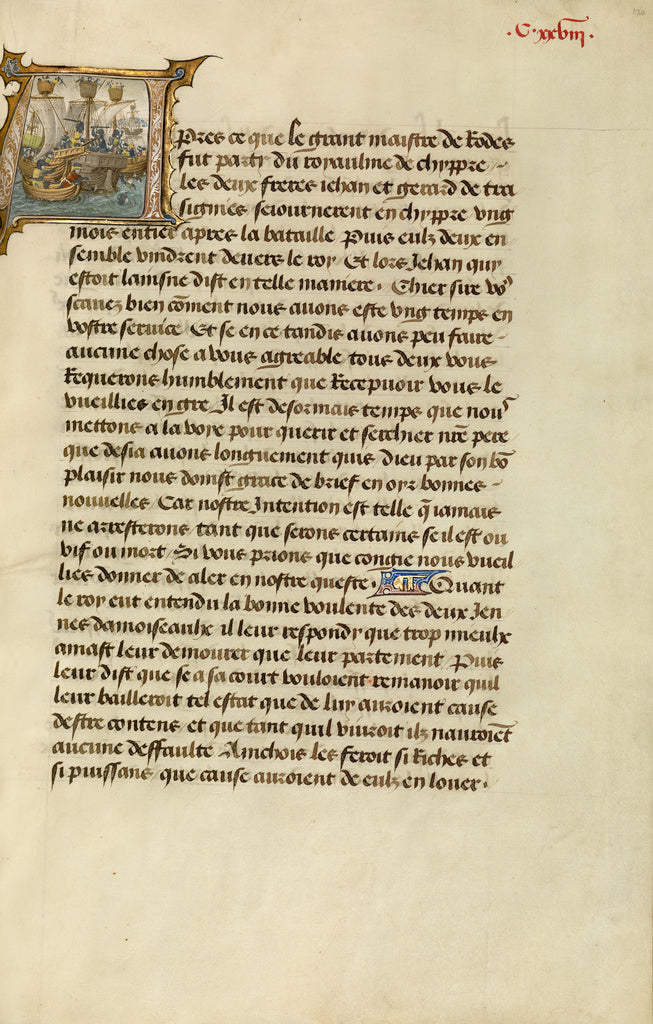 120
.C.xxviii.
Apres ce que le grant maistre de Rodes
fut party du royaulme de chyppre
les deux freres iehan et gerard de tra
signies seiournerent en chyppre ung
mois entier apres la bataille Puis eulz deux en
semble vindrent devers le roy Et lors Jehan quy
estoit laisne dist en telle maniere. Chier sire vo9
scavez bien cõment nous avons este ung temps en
vostre service Et se en ce tandis avons peu faire
aucune chose a vous agreable tous deux vous
Requerons humblement que Recepvoir vous le
vueillies en gre Il est desormais temps que nous
mettons a la voye pour querir et serchier nr̃e pere
que desia avons longuement quis Dieu par son bõ
plaisir nous doinst grace de brief en oyr bonnes
nouvelles Car nostre Intention est telle q̃ iamais
ne arresterons tant que serons certains se il est ou
vif ou mort Si vous prions que congie nous vueil
lies donner de aler en nostre queste. Quant
le roy eut entendu la bonne voulente des deux Jen
nes damoiseaulx il leur respondy que trop mieulx
amast leur demourer que leur partement Puis
leur dist que se a sa court vouloient remanoir quil
leur bailleroit tel estat que de luy auroient cause
destre contens et que tant quil vivroit ilz nauroiẽt
aucune deffaulte Ainchois les feroit si Riches et
si puissans que cause auroient de eulz en louer.